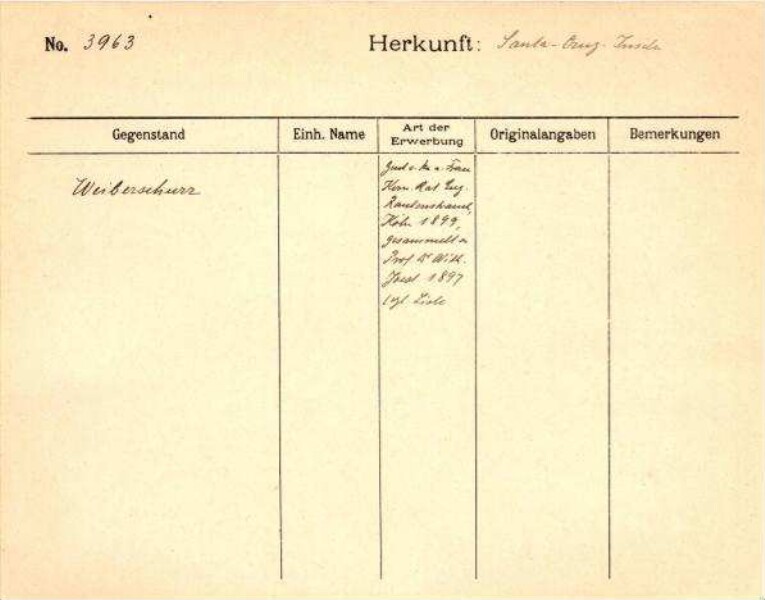 No. 3963 Herkunft: Santa-Cruz-Inseln
Gegenstand Einh. Name Art der Erwerbung Originalangaben Bemerkungen
Weiberschurz
Frau
Herrn. Rat Eug.
Rautenstrauch,
Köln 1899,
gesammelt v.
Prof Dr Wilh.
Joest 1897
vgl Liste